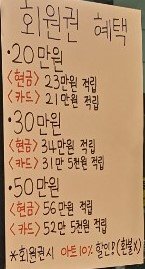 회원권 혜택
·20만원
<현금> 23만원 적립
<카드> 21만원 적립
·30만원
<현금> 34만원 적립
<카드> 31만 5천원 적립
·50만원
<현금> 56만원 적립
<카드> 52만 5천원 적립
*회원권시 아트10% 할인! (환불X)